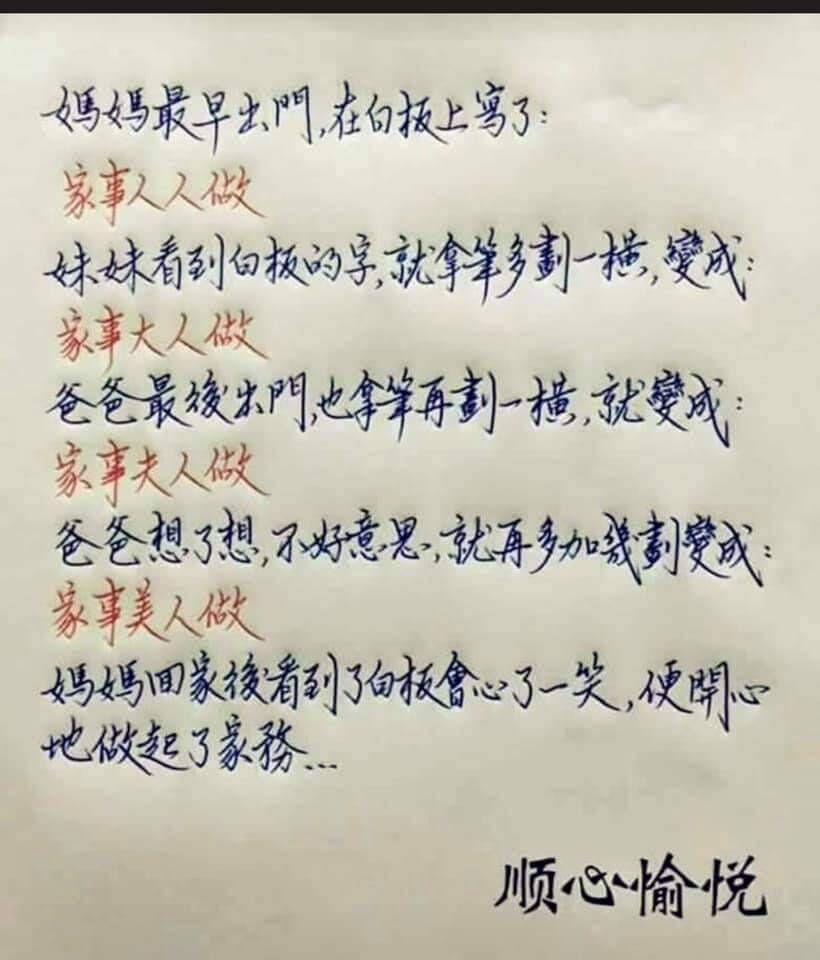 媽媽最早出門,在白板上寫了:
家事人人做
妹妹看到白板的字,就拿筆多劃一橫,變成:
家事大人做
爸爸最後出門,也拿筆再劃一橫,就變成:
家事夫人做
爸爸想了想,不好意思,就再多加幾劃變成:
家事美人做
媽媽回家後看到了白板會心了一笑,便開心
地做起了家務...
顺心愉悦